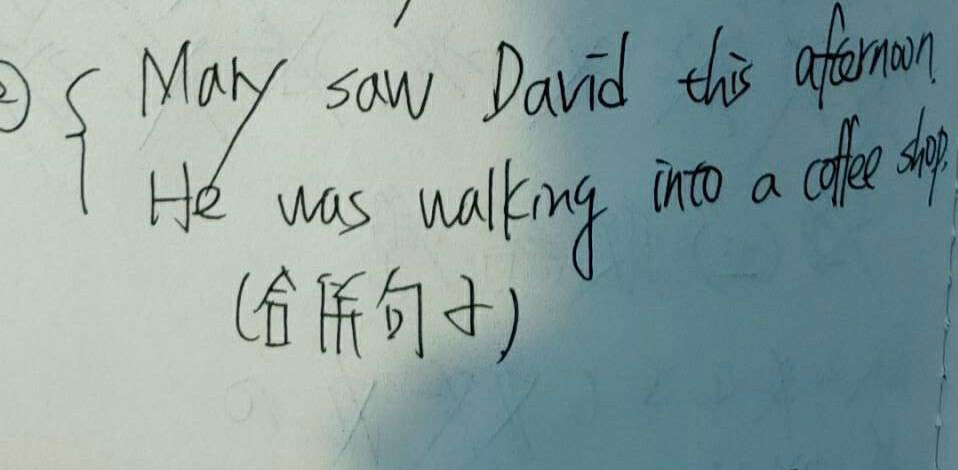 ② { Mary saw David this afternoon.
He was walking into a coffee shop.
(合併句子)